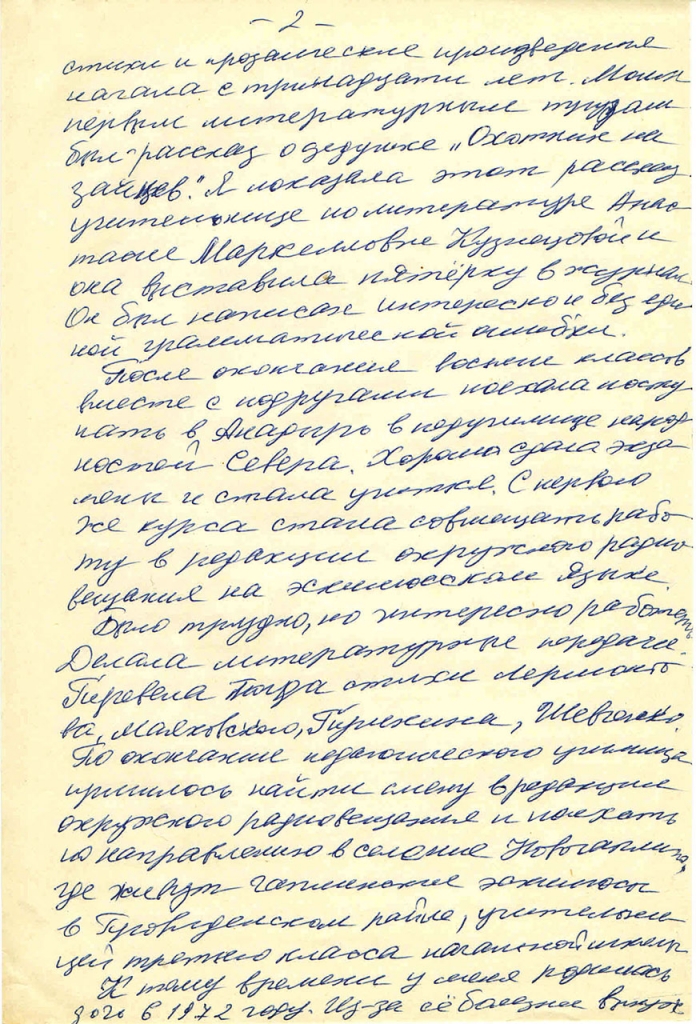 - 2 -
стихи и прозаические произведения
начала с тринадцати лет. Моим
первым литературным трудом
был рассказ о дедушке „Охотник на
зайцев". Я показала этот рассказ
учительнице по литературе Анас-
тасие Маркелловне Кузнецовой и
она выставила пятёрку в журнал.
Он был написан интересно и без еди-
ной грамматической ошибки.
После окончания восьми классов
вместе с подругами поехала посту-
пать в Анадырь в педучилище народ-
ностей Севера. Хорошо сдала экза-
мены и стала учиться. С первого
же курса стала совмещать рабо-
ту в редакции окружного радио-
вещания на эскимосском языке.
Было трудно, но интересно работать.
Делала литературные передачи.
Перевела тогда стихи Лермонто-
ва, Маяковского, Пушкина, Шевченко.
По окончание педагогического училища
пришлось найти смену в редакции
окружного радиовещания и поехать
по направлению в селение Новочаплино,
где живут чаплинские эскимосы
в Провиденском районе, учительни-
цей третьего класса начальной школы.
К тому времени у меня родилась
дочь в 1972 году. Из-за её болезни